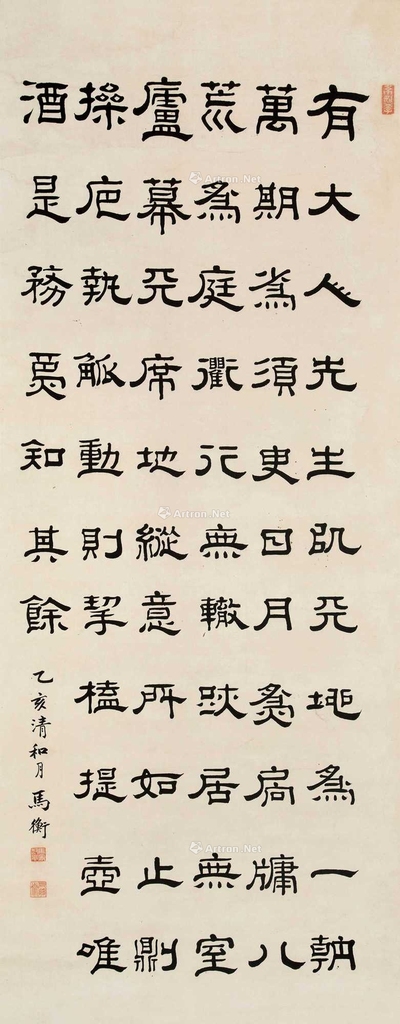 有大人先生以天地為一朝
萬期為須臾日月為扃牖八
荒為庭衢行無轍跡居無室
廬幕天席地縱意所如止則
操卮執觚動則挈榼提壺唯
酒是務焉知其餘
乙亥清和月馬衡
Artron.Net
Artron.Net
Artron.Net